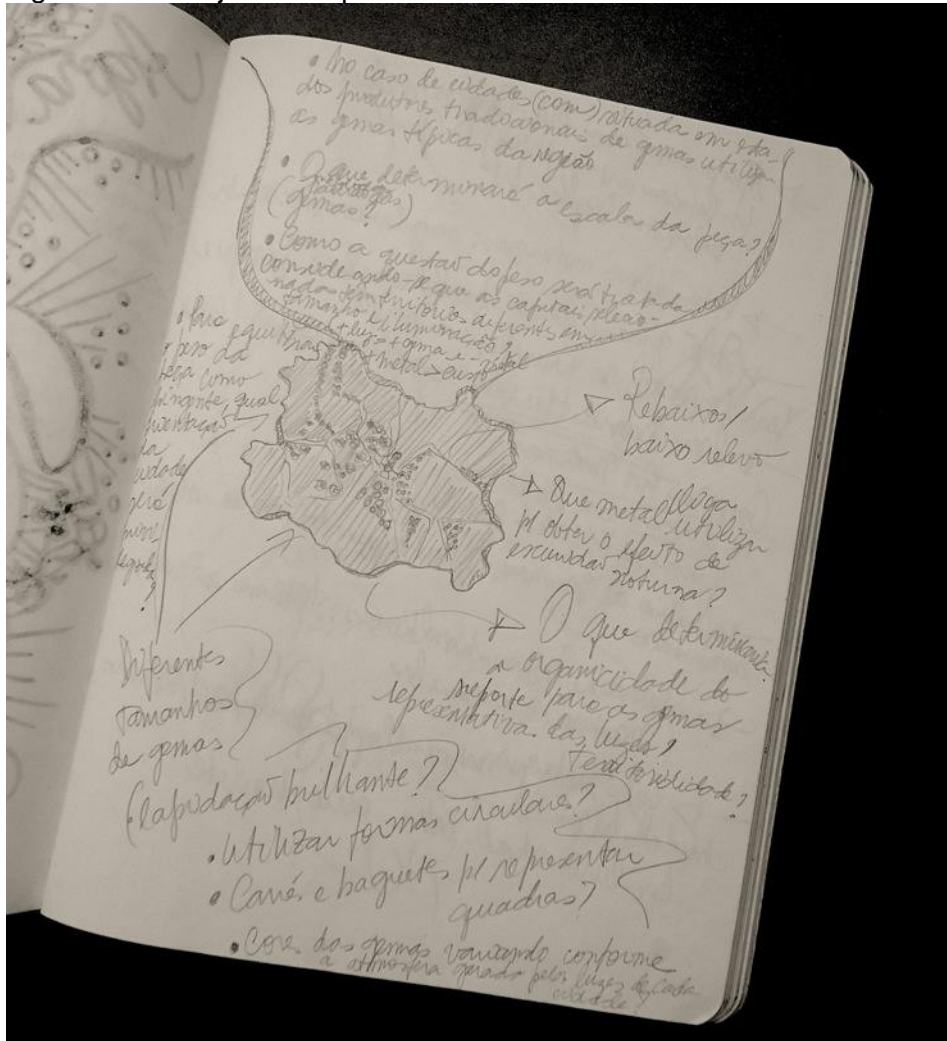 • No caso de cidades (com) situada em esta-
dos produtores tradicionais de gemas utilizar
as gemas típicas da região
• O que determinará a escala da peça?
(gemas?)
• Como a questão do peso será tratada
considerando-se que as capitais selecio-
nadas tem territórios diferentes em
tamanho e iluminação?
+ luz = + gema e - metal
+ metal > custo
• Para equilibrar
o peso da
peça como
pingente, qual
orientação
da
cidade
será
mais
legível?
Rebaixos/
baixo relevo
Que metal/liga
utilizar
p/ obter o efeito de
escuridão noturna?
O que determinaria
a organicidade do
suporte para as gemas
representativa das luzes?
Territorialidade?
Diferentes
tamanhos
de gemas
(lapidação brilhante?)
• Utilizar formas circulares?
• Carrés e baguetes p/ representar
quadras?
• Cores das gemas variando conforme
a atmosfera gerada pelas luzes de cada
cidade?